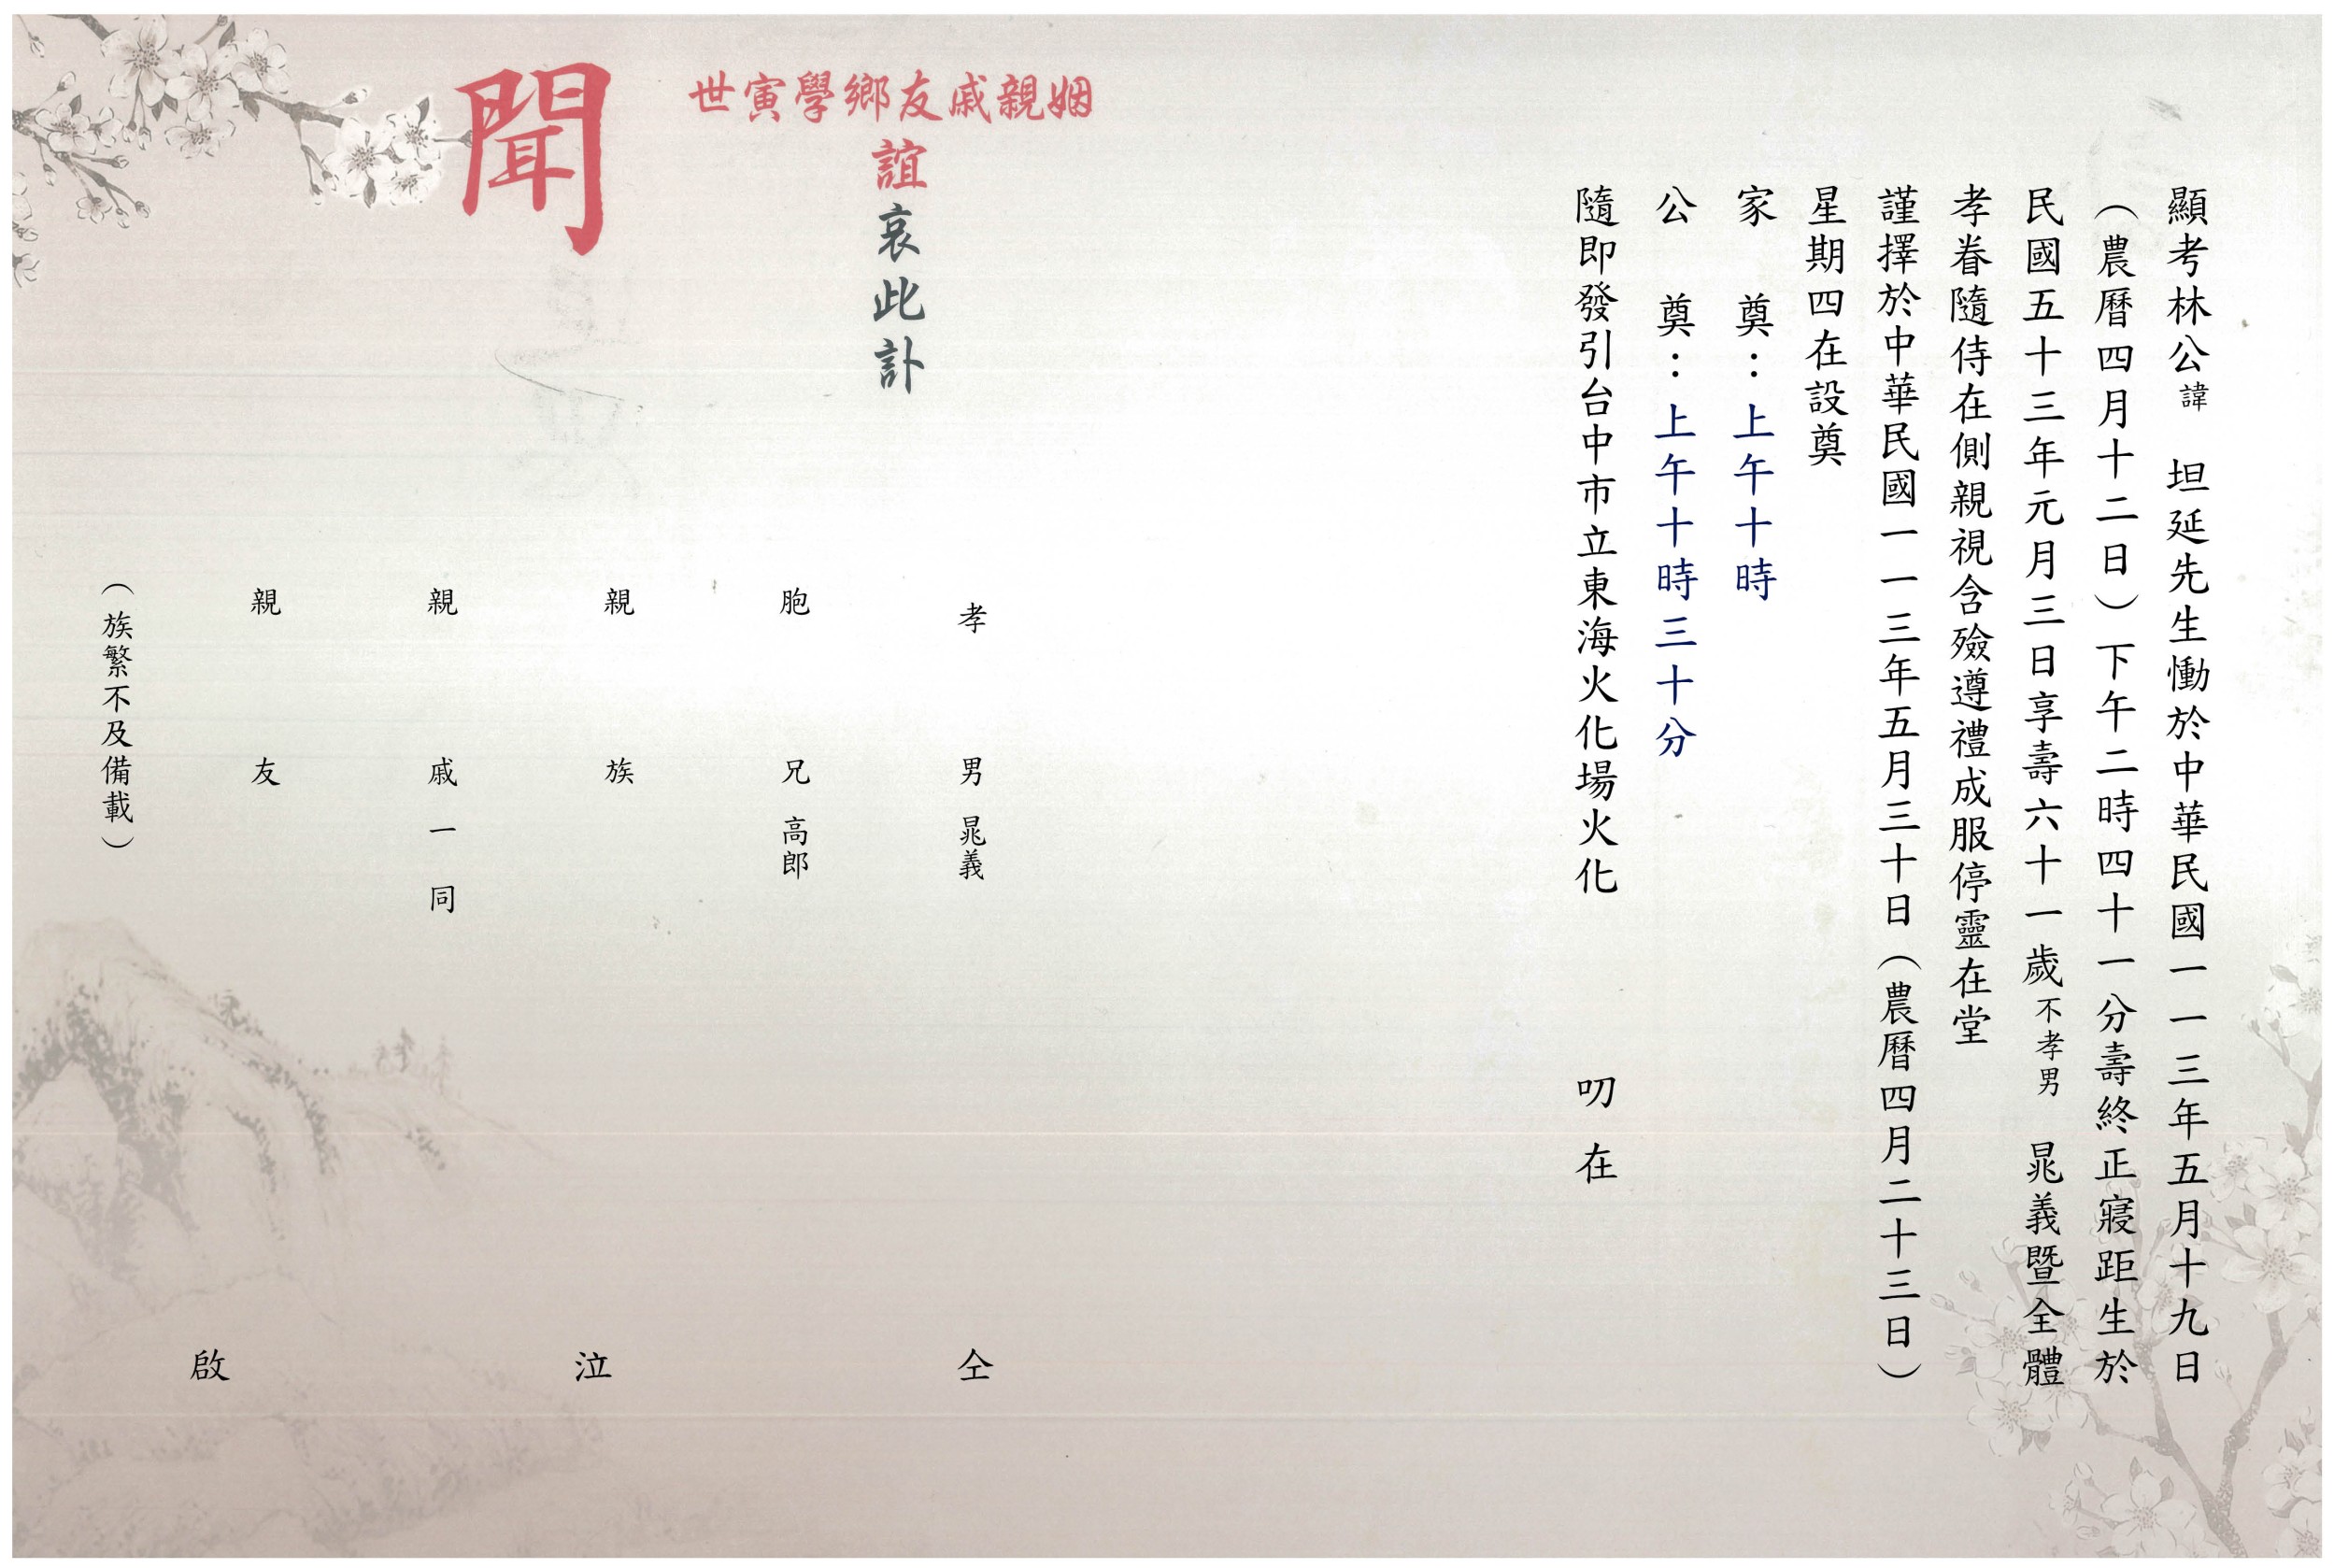 顯考林公諱 坦延先生慟於中華民國一一三年五月十九日
（農曆四月十二日）下午二時四十一分壽終正寢距生於
民國五十三年元月三日享壽六十一歲不孝男 晁義暨全體
孝眷隨侍在側親視含殮遵禮成服停靈在堂
謹擇於中華民國一一三年五月三十日（農曆四月二十三日）
星期四在設奠
家 奠：上午十時
公 奠：上午十時三十分
隨即發引台中市立東海火化場火化 叨在
姻親戚友鄉學寅世
誼哀此訃
聞
孝 男 晁義
胞 兄 高郎
親 族
親 戚 一 同
親 友
（族繁不及備載）
仝 泣 啟